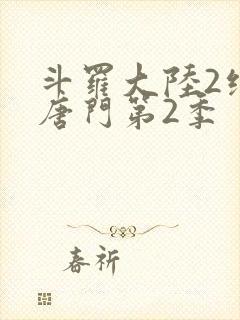 斗羅大陸2
唐門第2季
春祈